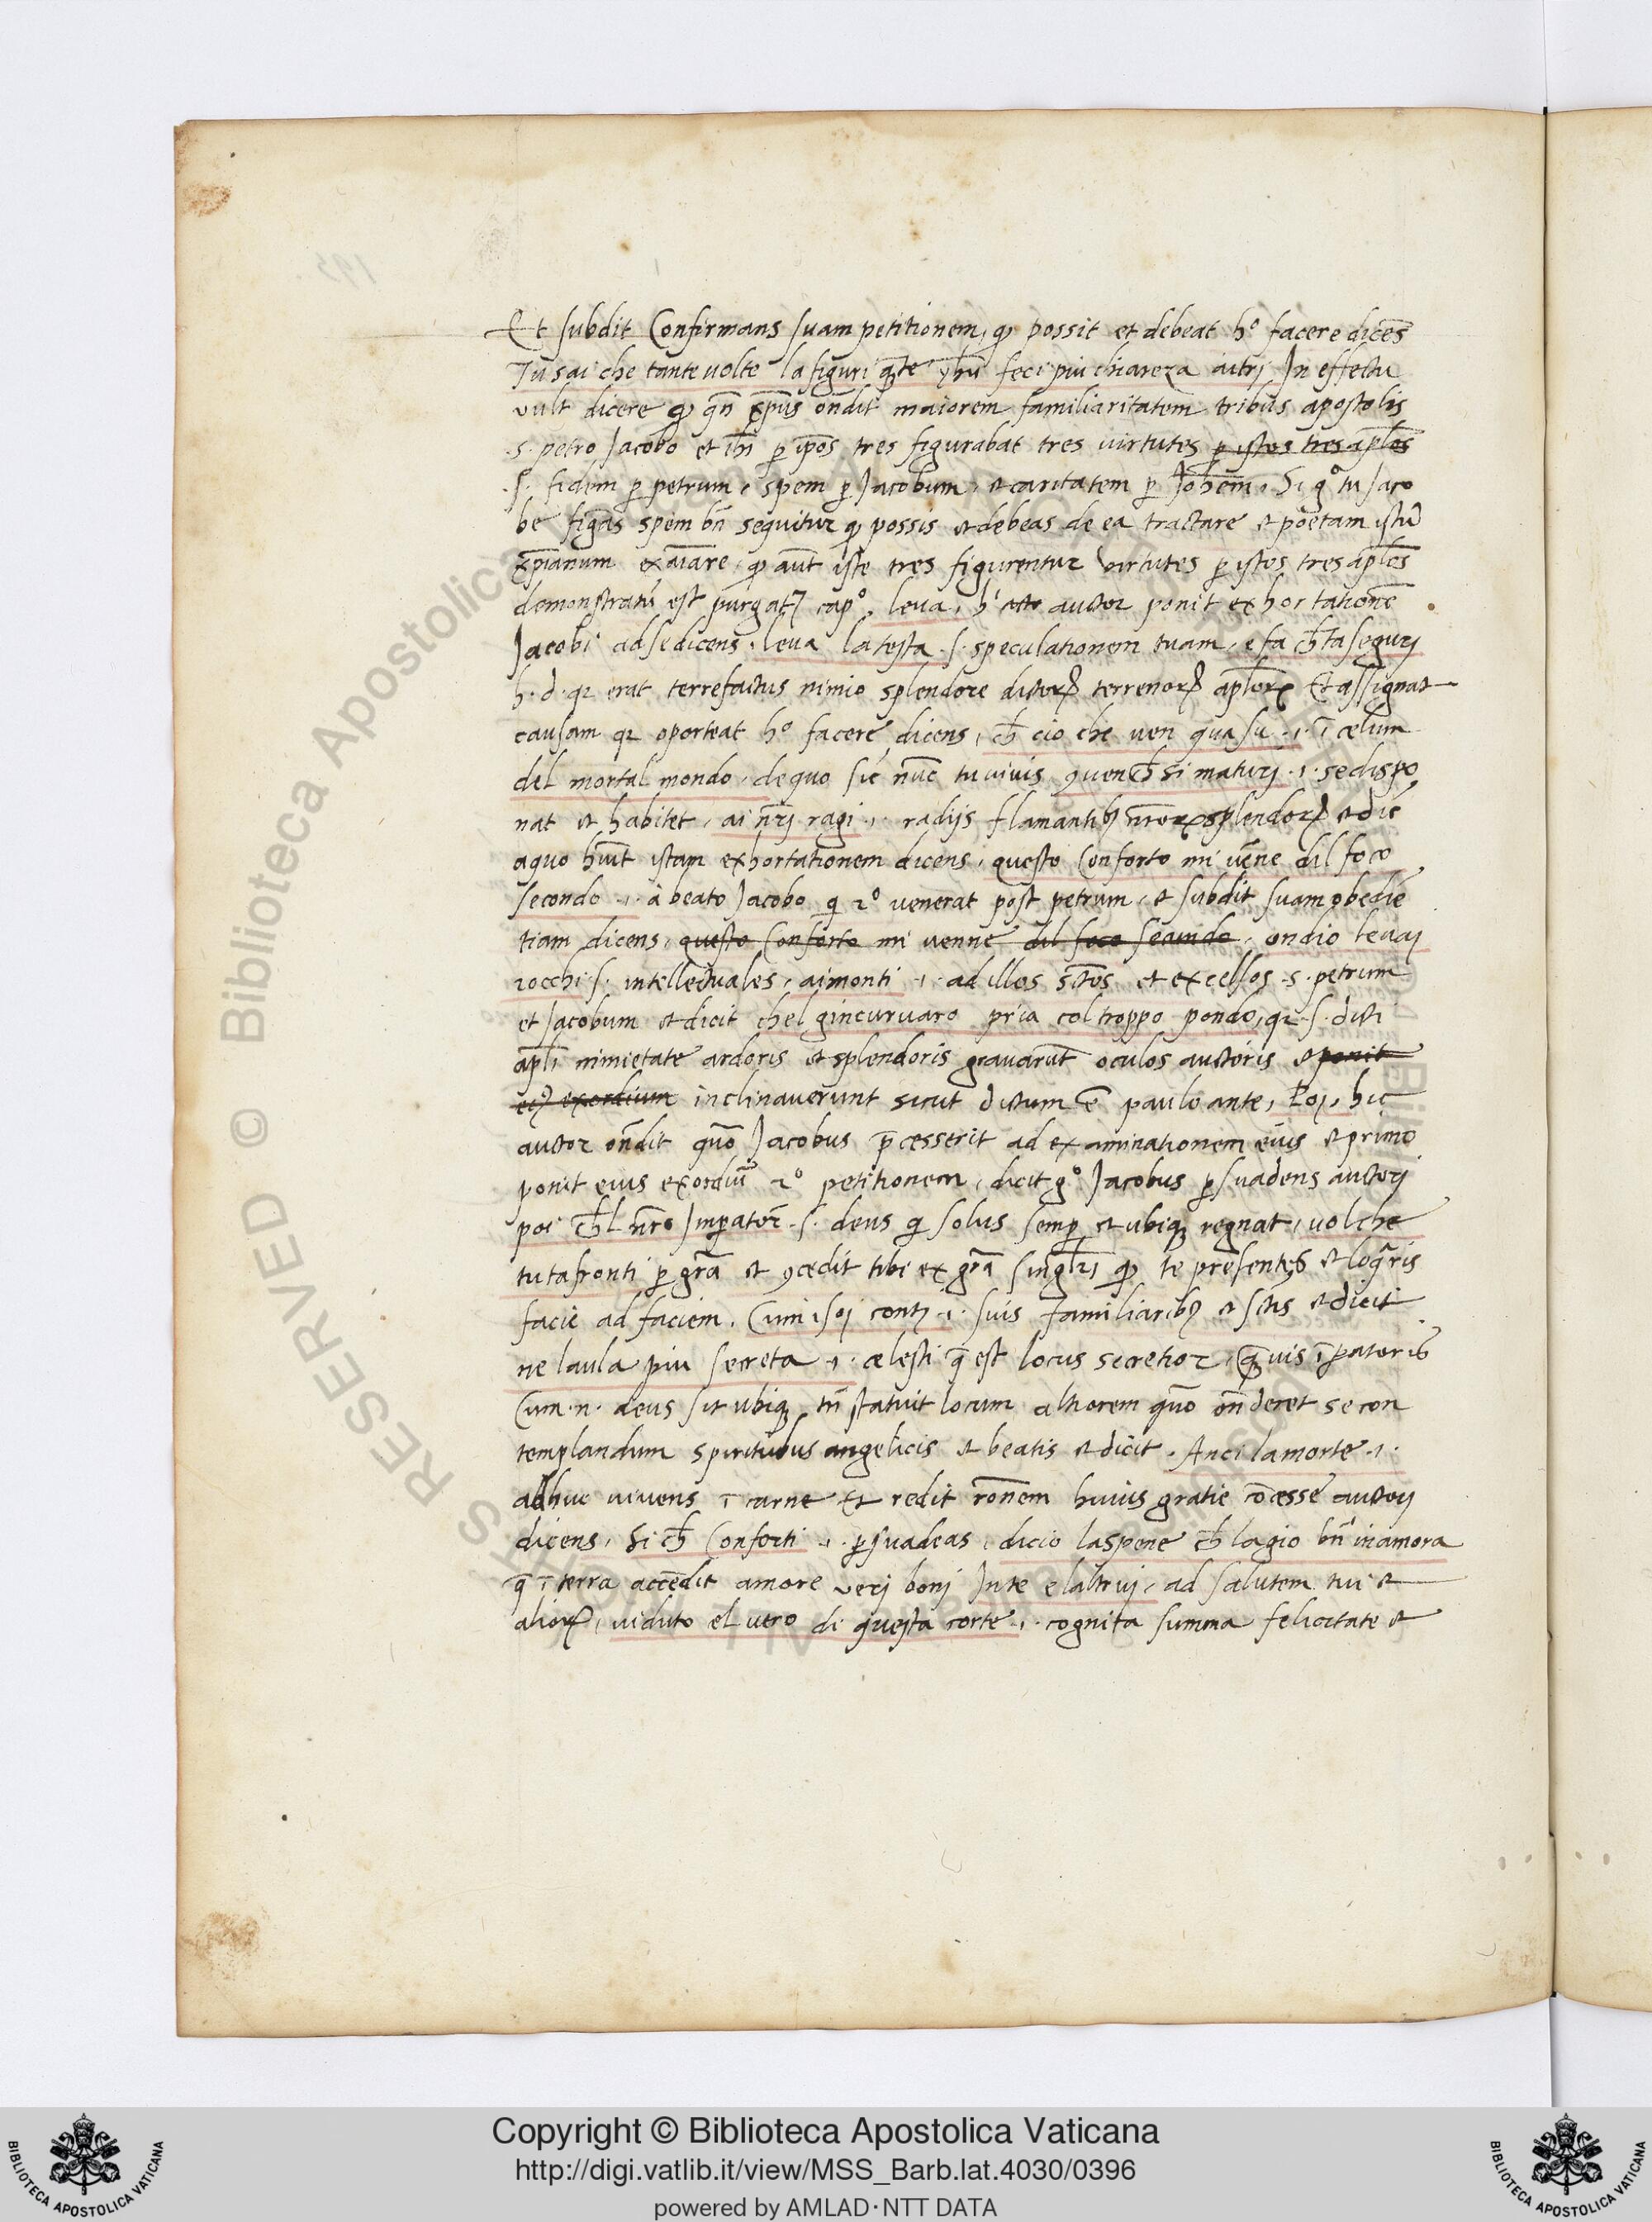 Et subdit Confirmans suam petitionem, ꝙ possit et debeat hº facere dicẽs
Tu sai che tante uolte la figuri q̃te yhũ feci piu chiareza aitrj In effectu
vult dicere ꝙ qñ xp̃us oñdit maiorem familiaritatem tribus apostolis
.s. petro Jacobo et ꝑ ip̃os tres figurabat tres virtutes ꝑ istos tres ap̃los
.s. fidem ꝑ petrum, spem ꝑ Jacobum, et caritatem ꝑ Johẽm. Si gº tu Jaco
be figãs spem bñ sequitur ꝙ possis et debeas de ea tractare et poetam istũ
xp̃ianum exaiare, ꝙ aũt iste tres figurentur virtutes ꝑ istos tres ap̃los
demonstratũ est purgat capº. leua, auctor ponit exhortationẽ
Jacobi ad se dicens. leua la testa .s. speculationem tuam, e fa ch̃ tasegurj
h. d. qr erat terrefactus nimio splendore dictorꝝ terrenorꝝ ap̃lorꝝ Et assignat
causam qr oporteat hº facere dicens, ch̃ cio che uen qua su .i. ĩ celum
del mortal mondo, de quo sic nũc tu uiuis, ꝯuen ch̃ si maturj .i. se dispo
nat et habitet, ai nr̃j ragi .i. radijs flamantibꝫ nr̃orꝝ splendorꝝ et dic
a quo hũit istam exhortationem dicens, questo Conforto mi uẽne dil foco
secondo .i. a beato Jacobo qi 2º venerat post petrum, et subdit suam obediẽ
tiam dicens, questo Conforto mi uenne dil foco secundo, ondio leuaj
iocchi .s. intellectuales, ai monti .i. ad illos sc̃tos et excelsos .s. petrum
et Jacobum et dicit chel gincuruaro pria col troppo pondo, qr .s. dicti
ap̃li nimietate ardoris et splendoris grauarũt oculos auctoris et ponit
eiꝰ exordium inclinauerunt sicut dictum ẽ paulo ante, Poj, hic
auctor oñdit quõ Jacobus p̃cesserit ad examinationem eius et primo
ponit eius exordiũ 2º petitionem, dicit gº Jacobus ꝑsuadens auctorj
poi ch̃l nr̃o Imꝑator .s. deus qi solus semꝑ et ubiqꝫ regnat, uol che
tu tafronti ꝑ grã et ꝯcedit tibi ex grã singlri ꝙ te presentes et loq̃ris
facie ad faciem, Cum i soj contj .i. suis familiaribꝫ et sc̃tis et dicit
ne laula piu secreta .i. celesti q̃ est locus secretior, q̃uis ĩꝑatoris
Cum .n. deus sit ubiqꝫ tñ statuit locum altiorem quõ oñderet se con
templandum spiritubus angelicis et beatis et dicit. Anci la morte .i.
adhuc uiuens ĩ carne Et redit rõnem huius gratie cõcesse auctorj
dicens, Si ch̃ Conforti .i. ꝑsuadeas, di cio la spene ch̃ lagio bñ inamora
q̃ ĩ terra accẽdit amore verj bonj In te e laltruj, ad salutem tui et
aliorꝝ, uiduto el uero di questa corte .i. cognita summa felicitate et
Copyright © Biblioteca Apostolica Vaticana
http://digi.vatlib.it/view/MSS_Barb.lat.4030/0396
powered by AMLAD·NTT DATA